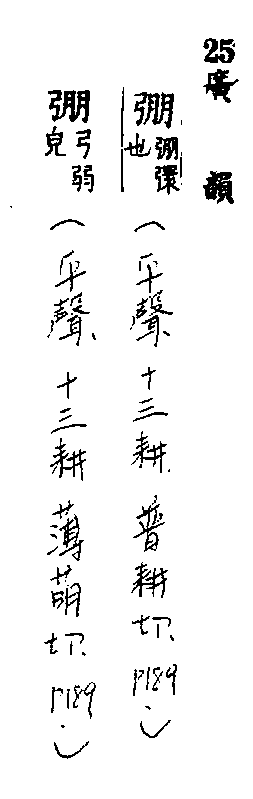 25廣韻
弸弸彋也(平聲、十三耕、普耕切、P189。)
弸弓弱皃(平聲、十三耕、薄萌切、P189。)